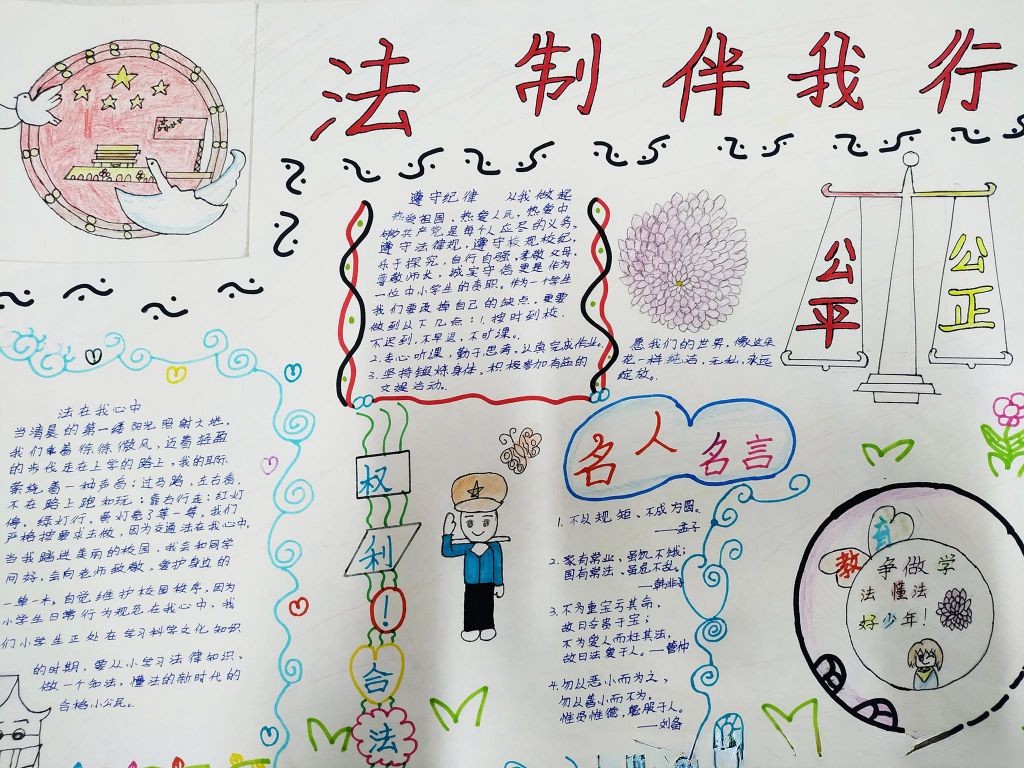 法制伴我行
遵守纪律 从我做起
热爱祖国,热爱人民,热爱中
国共产党是每个人应尽的义务,
遵守法律规,遵守校规校纪,
乐于探究,自行自强,孝敬父母,
尊敬师长,诚实守信更是作为
一位中小学生的
我们要改掉自己的缺点,更要
做到以下几点:1.按时到校,
不迟到,不早退,不旷课。
2.专心听课,勤于思考,认真完成作业。
3.坚持锻炼身体,积极参加有益的
文娱活动。
愿我们的世界,像这朵
花一样纯洁,无私,永远
绽放。
公平
公正
法在我心中
当清晨的第一缕阳光照射大地,
我们乘着徐徐微风,迈着轻盈
的步伐走在上学的路上,我的耳际
萦绕着一种声音:过马路,左右看,
不在路上跑和玩;靠右行走;红灯
停,绿灯行,黄灯亮了等一等。我们
严格按要求去做,因为交通法在我心中。
当我踏进美丽的校园,我会和同学
问好,会向老师敬敬,爱护身边的
一草一木,自觉维护校园秩序,因为
小学生日常行为规范在我心中、我
们小学生正处在学习科学文化知识
的时期,要从小学习法律知识,
做一个知法,懂法的新时代的
合格小公民。
权
利
!
合
法
名人名言
1.不以规矩、不成方圆。
——孟子
2.家有常业,虽饥不饿;
国有常法,虽危不乱。
——韩非子
3.不为重宝亏其命,
故曰令贵于宝;
不为爱人而枉其法,
故曰法爱于人。——管仲
4.勿以恶小而为之,
勿以善小而不为。
惟贤惟德,能服于人。
——刘备
教育
争做学
法懂法
好少年!